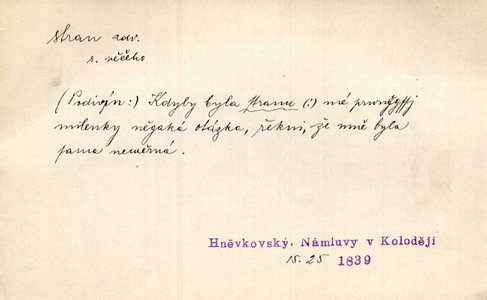 stran adv.
s. něčeho
(Podivín:) Kdyby byla stranu (!) mé prwnějssj
milenky něgaká otázka, řekni, že mně byla
sama newěrná.
Hněvkovský. Námluvy v Koloději
15. 25 1839